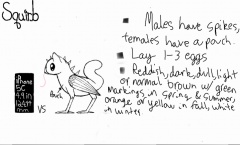 Squinb
• Males have spikes,
females have a pouch.
• Lay 1-3 eggs
• Reddish, dark, dull, light
or normal brown w/ green
markings in spring & summer,
orange or yellow in fall, white
in winter.
iPhone
5C
4.9 in
124.4
mm
VS